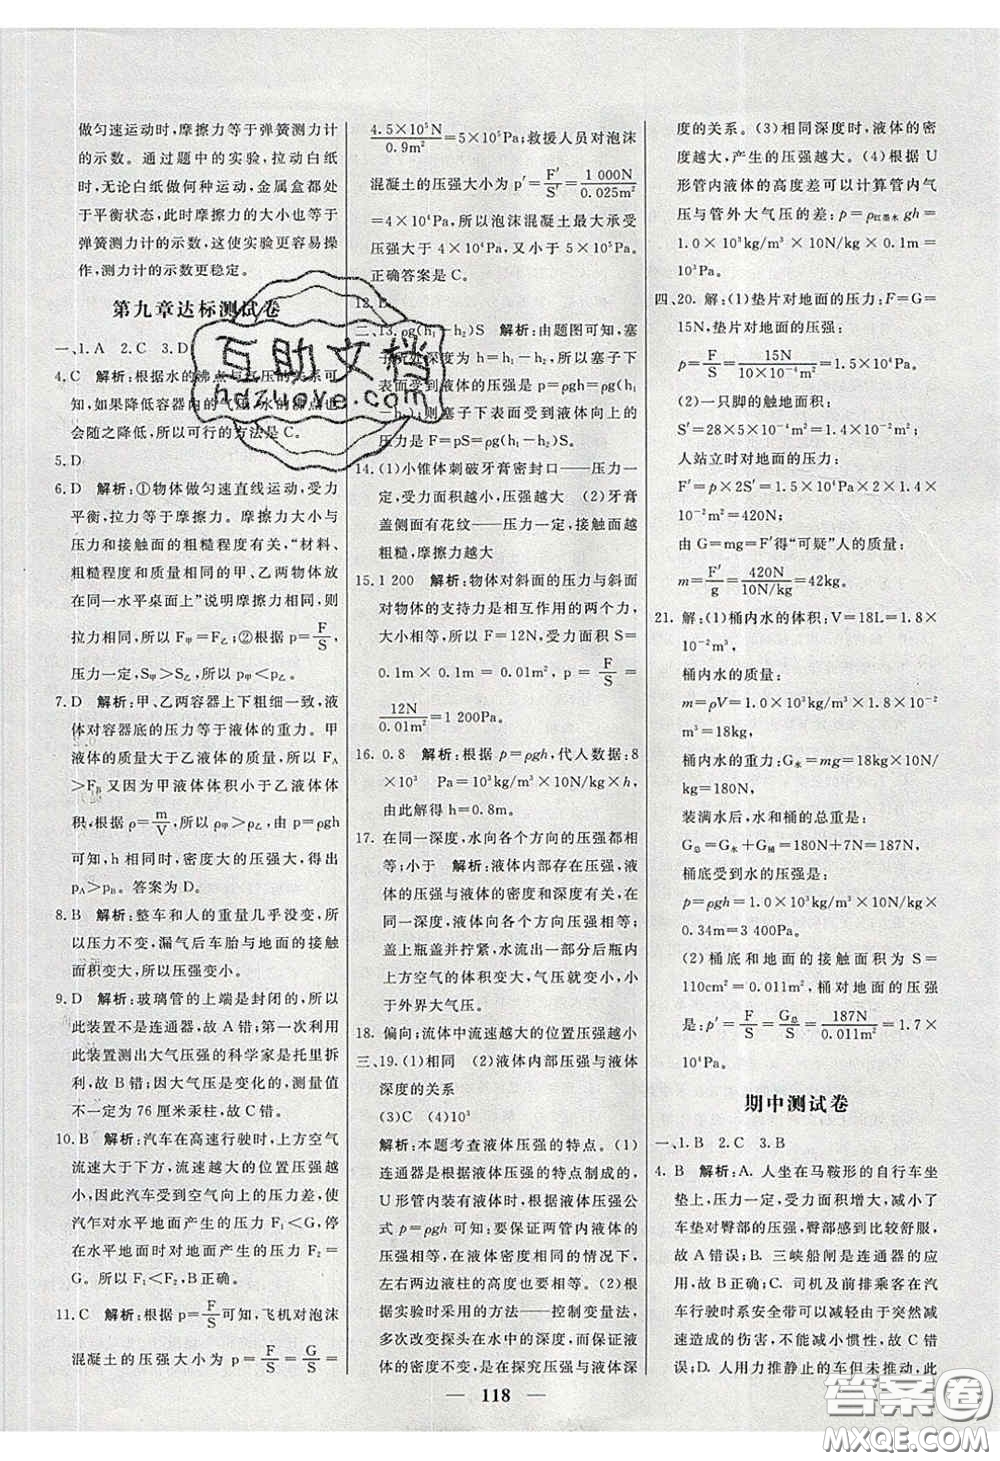 做匀速运动时,摩擦力等于弹簧测力计
的示数。通过题中的实验,拉动白纸
时,无论白纸做何种运动,金属盒都处
于平衡状态,此时摩擦力的大小也等于
弹簧测力计的示数,这使实验更容易操
作,测力计的示数更稳定。
第九章达标测试卷
一、1. A 2. C 3. D
4. C 解析:根据水的沸点与气压的关系可
知,如果降低容器内的气压,水的沸点也
会随之降低,所以可行的方法是C。
5. D
6. D 解析:①物体做匀速直线运动,受力
平衡,拉力等于摩擦力。摩擦力大小与
压力和接触面的粗糙程度有关,“材料、
粗糙程度和质量相同的甲、乙两物体放
在同一水平桌面上”说明摩擦力相同,则
拉力相同,所以 F甲=F乙;②根据 p=F/S,
压力一定,S甲>S乙,所以 p甲<p乙。
7. D 解析:甲、乙两容器上下粗细一致,液
体对容器底的压力等于液体的重力。甲
液体的质量大于乙液体的质量,所以 FA
>FB 又由于甲液体体积小于乙液体体
积,根据 ρ=m/V,所以 ρ甲>ρ乙,由 p=ρgh
可知,h 相同时,密度大的压强大,得出
pA>pB。答案为 D。
8. B 解析:整车和人的重量几乎没变,所
以压力不变,漏气后车胎与地面的接触
面积变大,所以压强变小。
9. D 解析:玻璃管的上端是封闭的,所以
此装置不是连通器,故 A 错;第一次利用
此装置测出大气压强的科学家是托里拆
利,故 B 错;因大气压是变化的,测量值
不一定为 76 厘米汞柱,故 C 错。
10. B 解析:汽车在高速行驶时,上方空气
流速大于下方,上方压强小于下方压
强,因此汽车受到空气向上的压力差,使
汽车对水平地面产生的压力 F1<G,停
在水平地面时对地面产生的压力 F2=
G。所以 F1<F2。
11. C 解析:根据 p=F/S可知,飞机对泡沫
混凝土的压强大小为 p=F/S=G/S=
4.5×10⁵N/0.9m²=5×10⁵Pa;救援人员对泡沫
混凝土的压强大小为 p′=F′/S′=1 000N/0.025m²
=4×10⁴Pa,所以泡沫混凝土最大承受
压强大于 4×10⁴Pa,又小于 5×10⁵Pa。
正确答案是 C。
12.
二、13. ρg(h₁-h₂)S 解析:由题图可知,塞
子所处深度为 h=h₁-h₂,所以塞子下
表面受到液体的压强是 p=ρgh=ρg(h₁
-h₂),则塞子下表面受到液体向上的
压力是 F=pS=ρg(h₁-h₂)S。
14. (1)小锥体刺破牙膏密封口——压力一
定,受力面积越小,压强越大 (2)牙膏
盖侧面有花纹——压力一定,接触面越
粗糙,摩擦力越大
15. 1 200 解析:物体对斜面的压力与斜面
对物体的支持力是相互作用的两个力,
大小相等,所以 F=12N,受力面积 S=
0.1m×0.1m=0.01m²,p=F/S=
12N/0.01m²=1 200Pa。
16. 0.8 解析:根据 p=ρgh,代人数据:8
×10³ Pa=10³kg/m³×10N/kg×h,
由此解得 h=0.8m。
17. 在同一深度,水向各个方向的压强都相
等;小于 解析:液体内部存在压强,液体
的压强与液体的密度和深度有关,并且
在同一深度,液体向各个方向压强相等;
盖上瓶盖并拧紧,水流出一部分后瓶内
上方空气的体积变大,气压就变小,其值
小于外界大气压。
18. 偏向;流体中流速越大的位置压强越小
三、19. (1)相同 (2)液体内部压强与液体
深度的关系
(3)C (4)10³
解析:本题考查液体压强的特点。(1)
连通器是根据液体压强的特点制成的,
U 形管内装有液体时,根据液体压强公
式 p=ρgh 可知:要保证两管内液体的
压强相等,在同种液体密度相等的情况下,
左右两边液柱的高度也要相等。(2)
根据实验时采用的方法——控制变量法,
多次改变探头在水中的深度,而保证液体
的密度不变,是在探究压强与液体深
度的关系。(3)相同深度时,液体的密
度越大,产生的压强越大。(4)根据 U
形管内液体的高度差可以计算管内气
压与管外大气压的差:p=ρ红墨水gh=
1.0×10³kg/m³×10N/kg×0.1m=
10³Pa。
四、20. 解:(1)垫片对地面的压力:F=G=
15N,垫片对地面的压强:
p=F/S=15N/10×10⁻⁴m²=1.5×10⁴Pa。
(2)一只脚的触地面积:
S′=28×5×10⁻⁴m²=1.4×10⁻²m²,
人站立时对地面的压力:
F′=p×2S′=1.5×10⁴Pa×2×1.4×
10⁻²m²=420N,
由 G=mg=F′得“可疑”人的质量:
m=F′/g=420N/10N/kg=42kg。
21. 解:(1)桶内水的体积:V=18L=1.8×
10⁻²m³,
桶内水的质量:
m=ρV=1.0×10³kg/m³×1.8×10⁻²m³
=18kg,
桶内水的重力:G水=mg=18kg×10N/
kg=180N,
装满水后,水和桶的总重是:
G总=G水+G桶=180N+7N=187N,
桶底受到水的压强是:
p=ρgh=1.0×10³kg/m³×10N/kg×
0.34m=3 400Pa。
(2)桶底和地面的接触面积 S=
110cm²=0.011m²,桶对地面的压强
是:p′=F/S=G总/S=187N/0.011m²=1.7×
10⁴Pa。
期中测试卷
一、1. B 2. C 3. B
4. B 解析:A. 人坐在马鞍形的自行车坐
垫上,压力一定,受力面积增大,减小了
车垫对臀部的压强,臀部感到比较舒服,
故 A 错误;B. 三峡船闸是连通器的应
用,故 B 正确;C. 司机及前排乘客在汽
车行驶时系安全带可以减轻由于突然减
速造成的伤害,不能减小惯性,故 C 错
误;D. 人用力推静止的车但未推动,此
118
互助文档
hdzuowe.com
答案圈
MXQE.COM